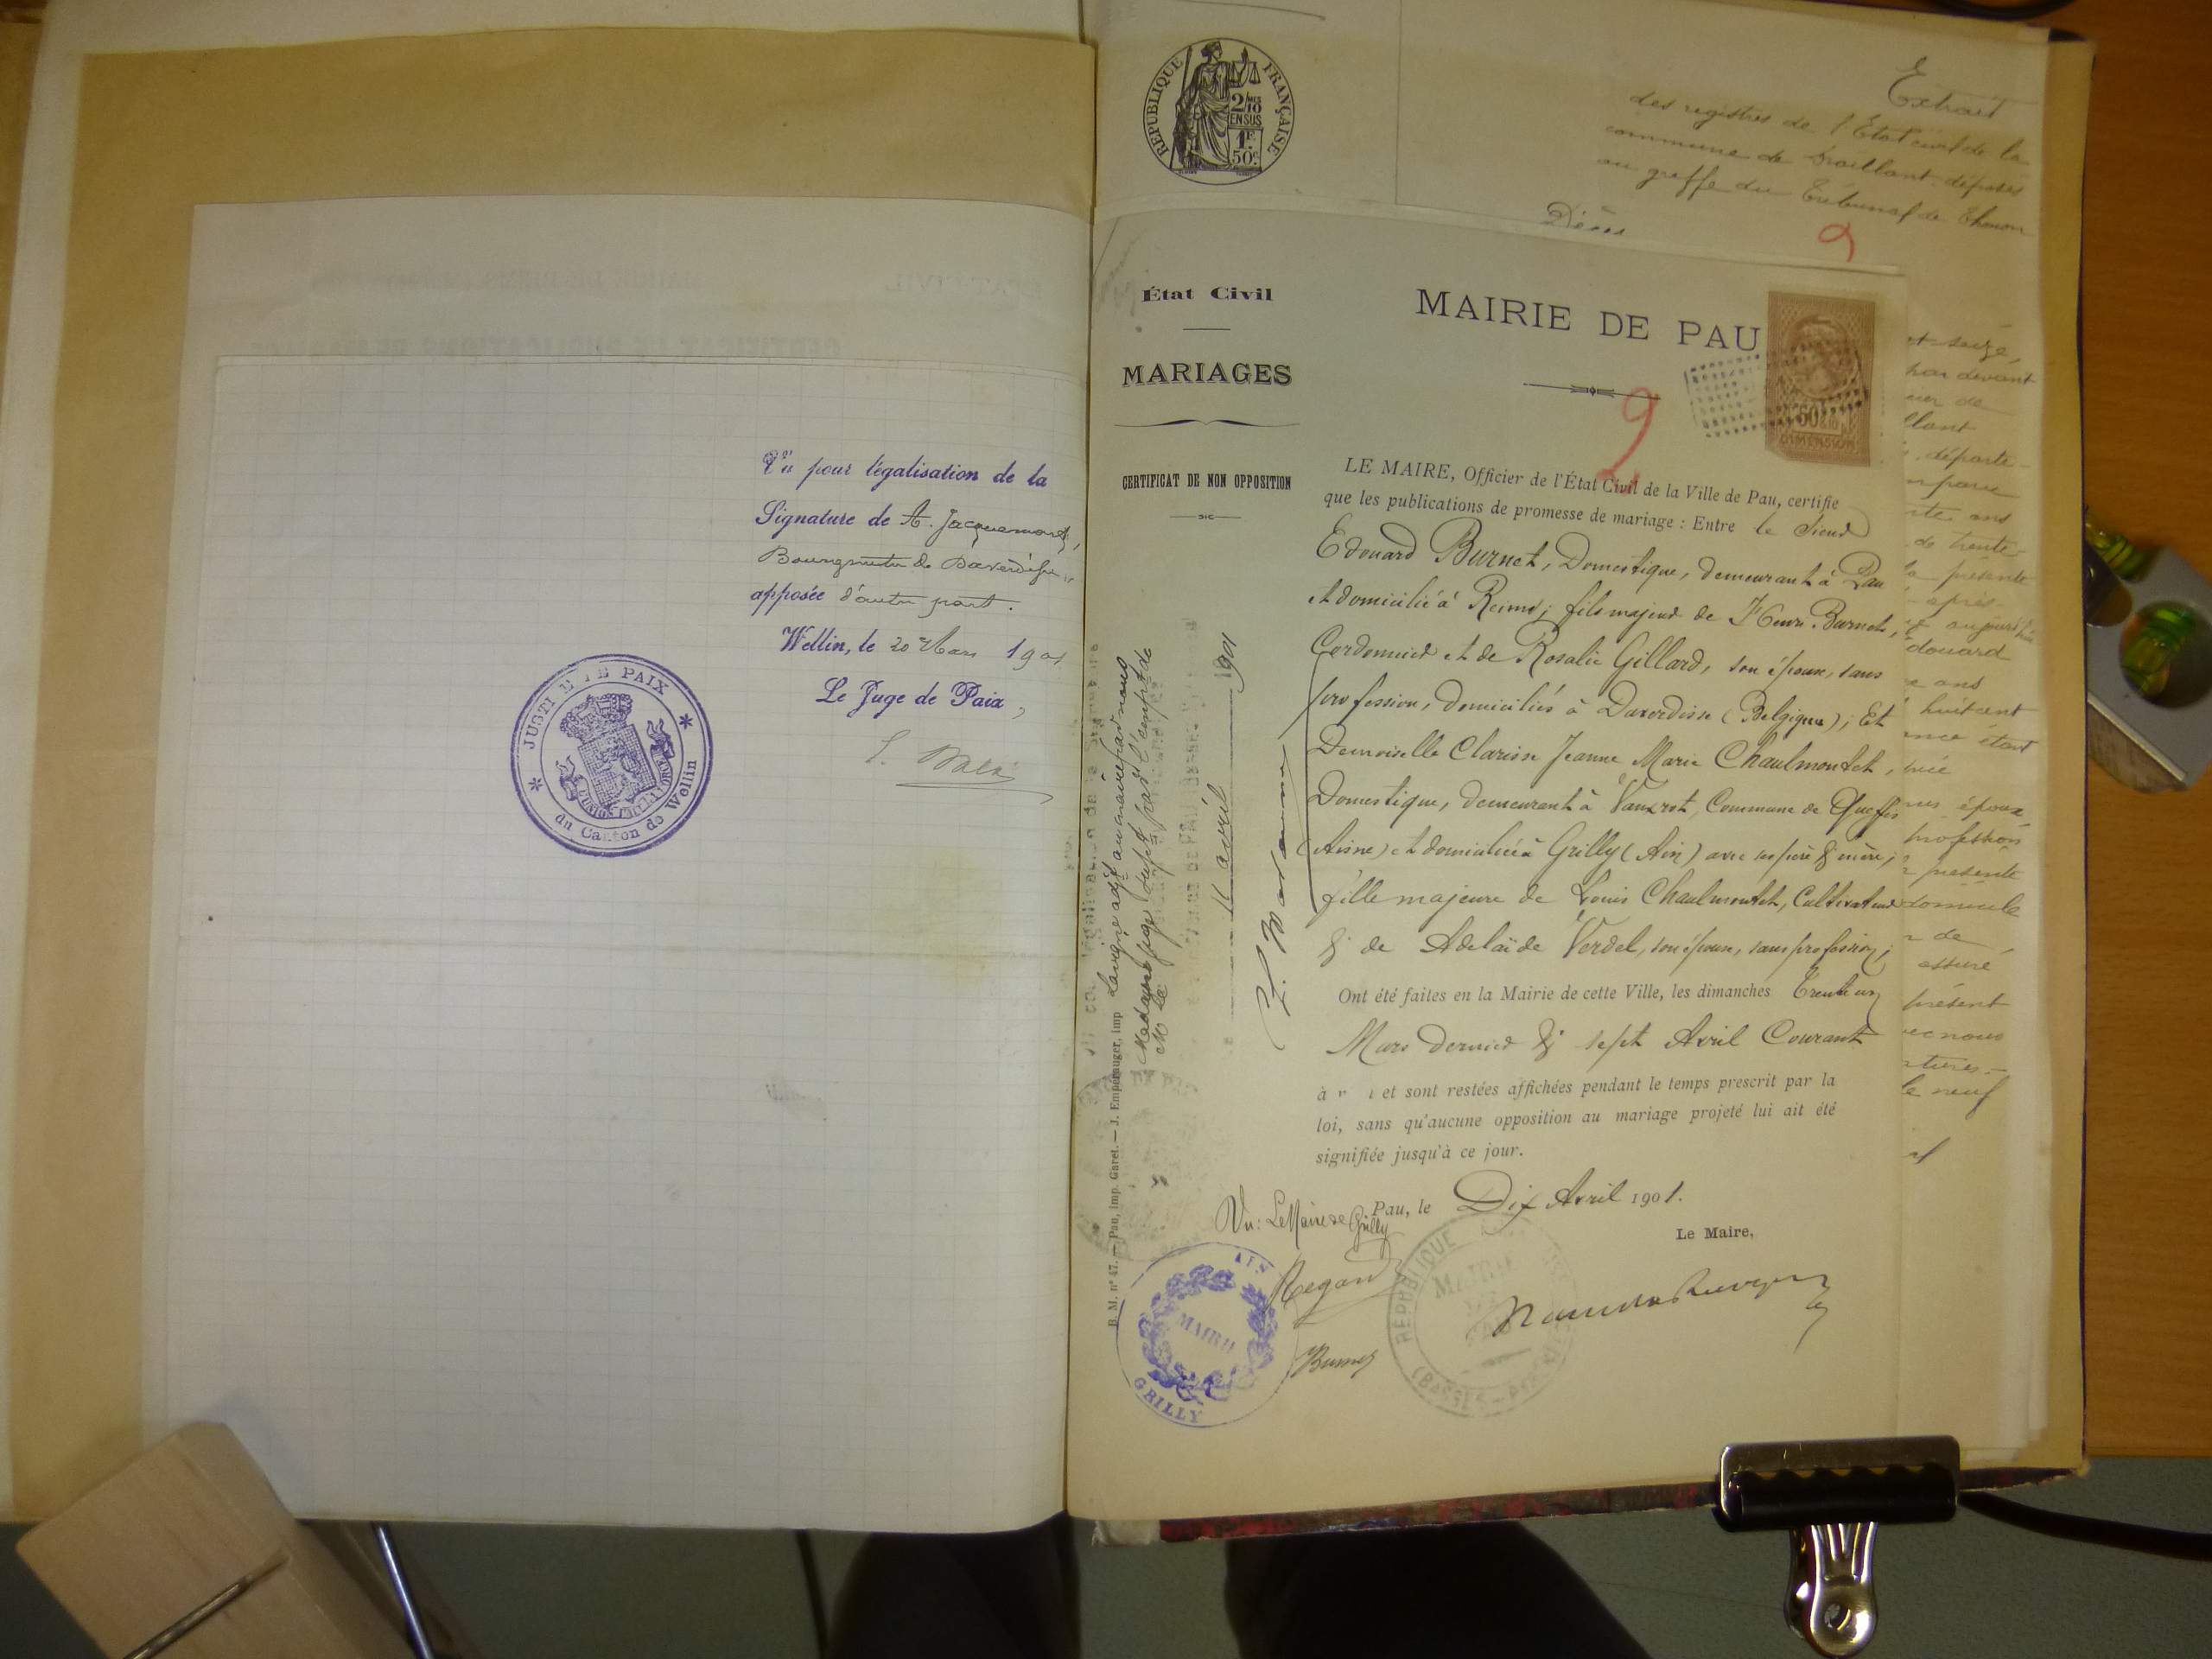 Vu pour légalisation de la
Signature de A. Jacquemart,
Bourgmestre de Daverdisse,
apposée d'autre part.
Wellin, le 20 Mars 1901
Le Juge de Paix,
JUSTICE DE PAIX
du Canton de Wellin
L'UNION FAIT LA FORCE
RÉPUBLIQUE FRANÇAISE
2/10
EN SUS
1F
50c
Extrait
des registres de l'Etat civil de la
commune de Draillant déposés
au greffe du Tribunal de Thonon
Décès
2
État Civil
MARIAGES
CERTIFICAT DE NON OPPOSITION
MAIRIE DE PAU
2
DIMENSION
LE MAIRE, Officier de l'État Civil de la Ville de Pau, certifie
que les publications de promesse de mariage : Entre le Sieur
Edouard Burnet, Domestique, demeurant à Pau
et domicilié à Reims; fils majeur de Henri Burnet,
Cordonnier et de Rosalie Gillard, son épouse, sans
profession, domiciliés à Daverdisse (Belgique); Et
Demoiselle Clarisse Jeanne Marie Chaulmontet,
Domestique, demeurant à Vauxrot, Commune de Cuffies
(Aisne) et domiciliée à Grilly (Ain) avec ses père & mère;
fille majeure de Louis Chaulmontet, Cultivateur
& de Adelaïde Verdel, son épouse, sans profession;
Ont été faites en la Mairie de cette Ville, les dimanches Trente un
Mars dernier & sept Avril Courant
et sont restées affichées pendant le temps prescrit par la
loi, sans qu'aucune opposition au mariage projeté lui ait été
signifiée jusqu'à ce jour.
Pau, le Dix Avril 1901.
Le Maire,
Vu: Le Maire de Grilly
Regard
Burnet
AIN
MAIRIE
GRILLY
RÉPUBLIQUE
MAIRIE
DE
PAU
(BASSES-PYRÉNÉES)
B. M. n° 47. — Pau, imp. Garet. — J. Empérauger, imp
11 avril 1901
et seize,
par devant
départe-
ans
de trente
présente
après
aujourd'hui
Edouard
ans
huit cent
étant
époux
profession
présente
domicile
de
assuré
présent
nous
le neuf